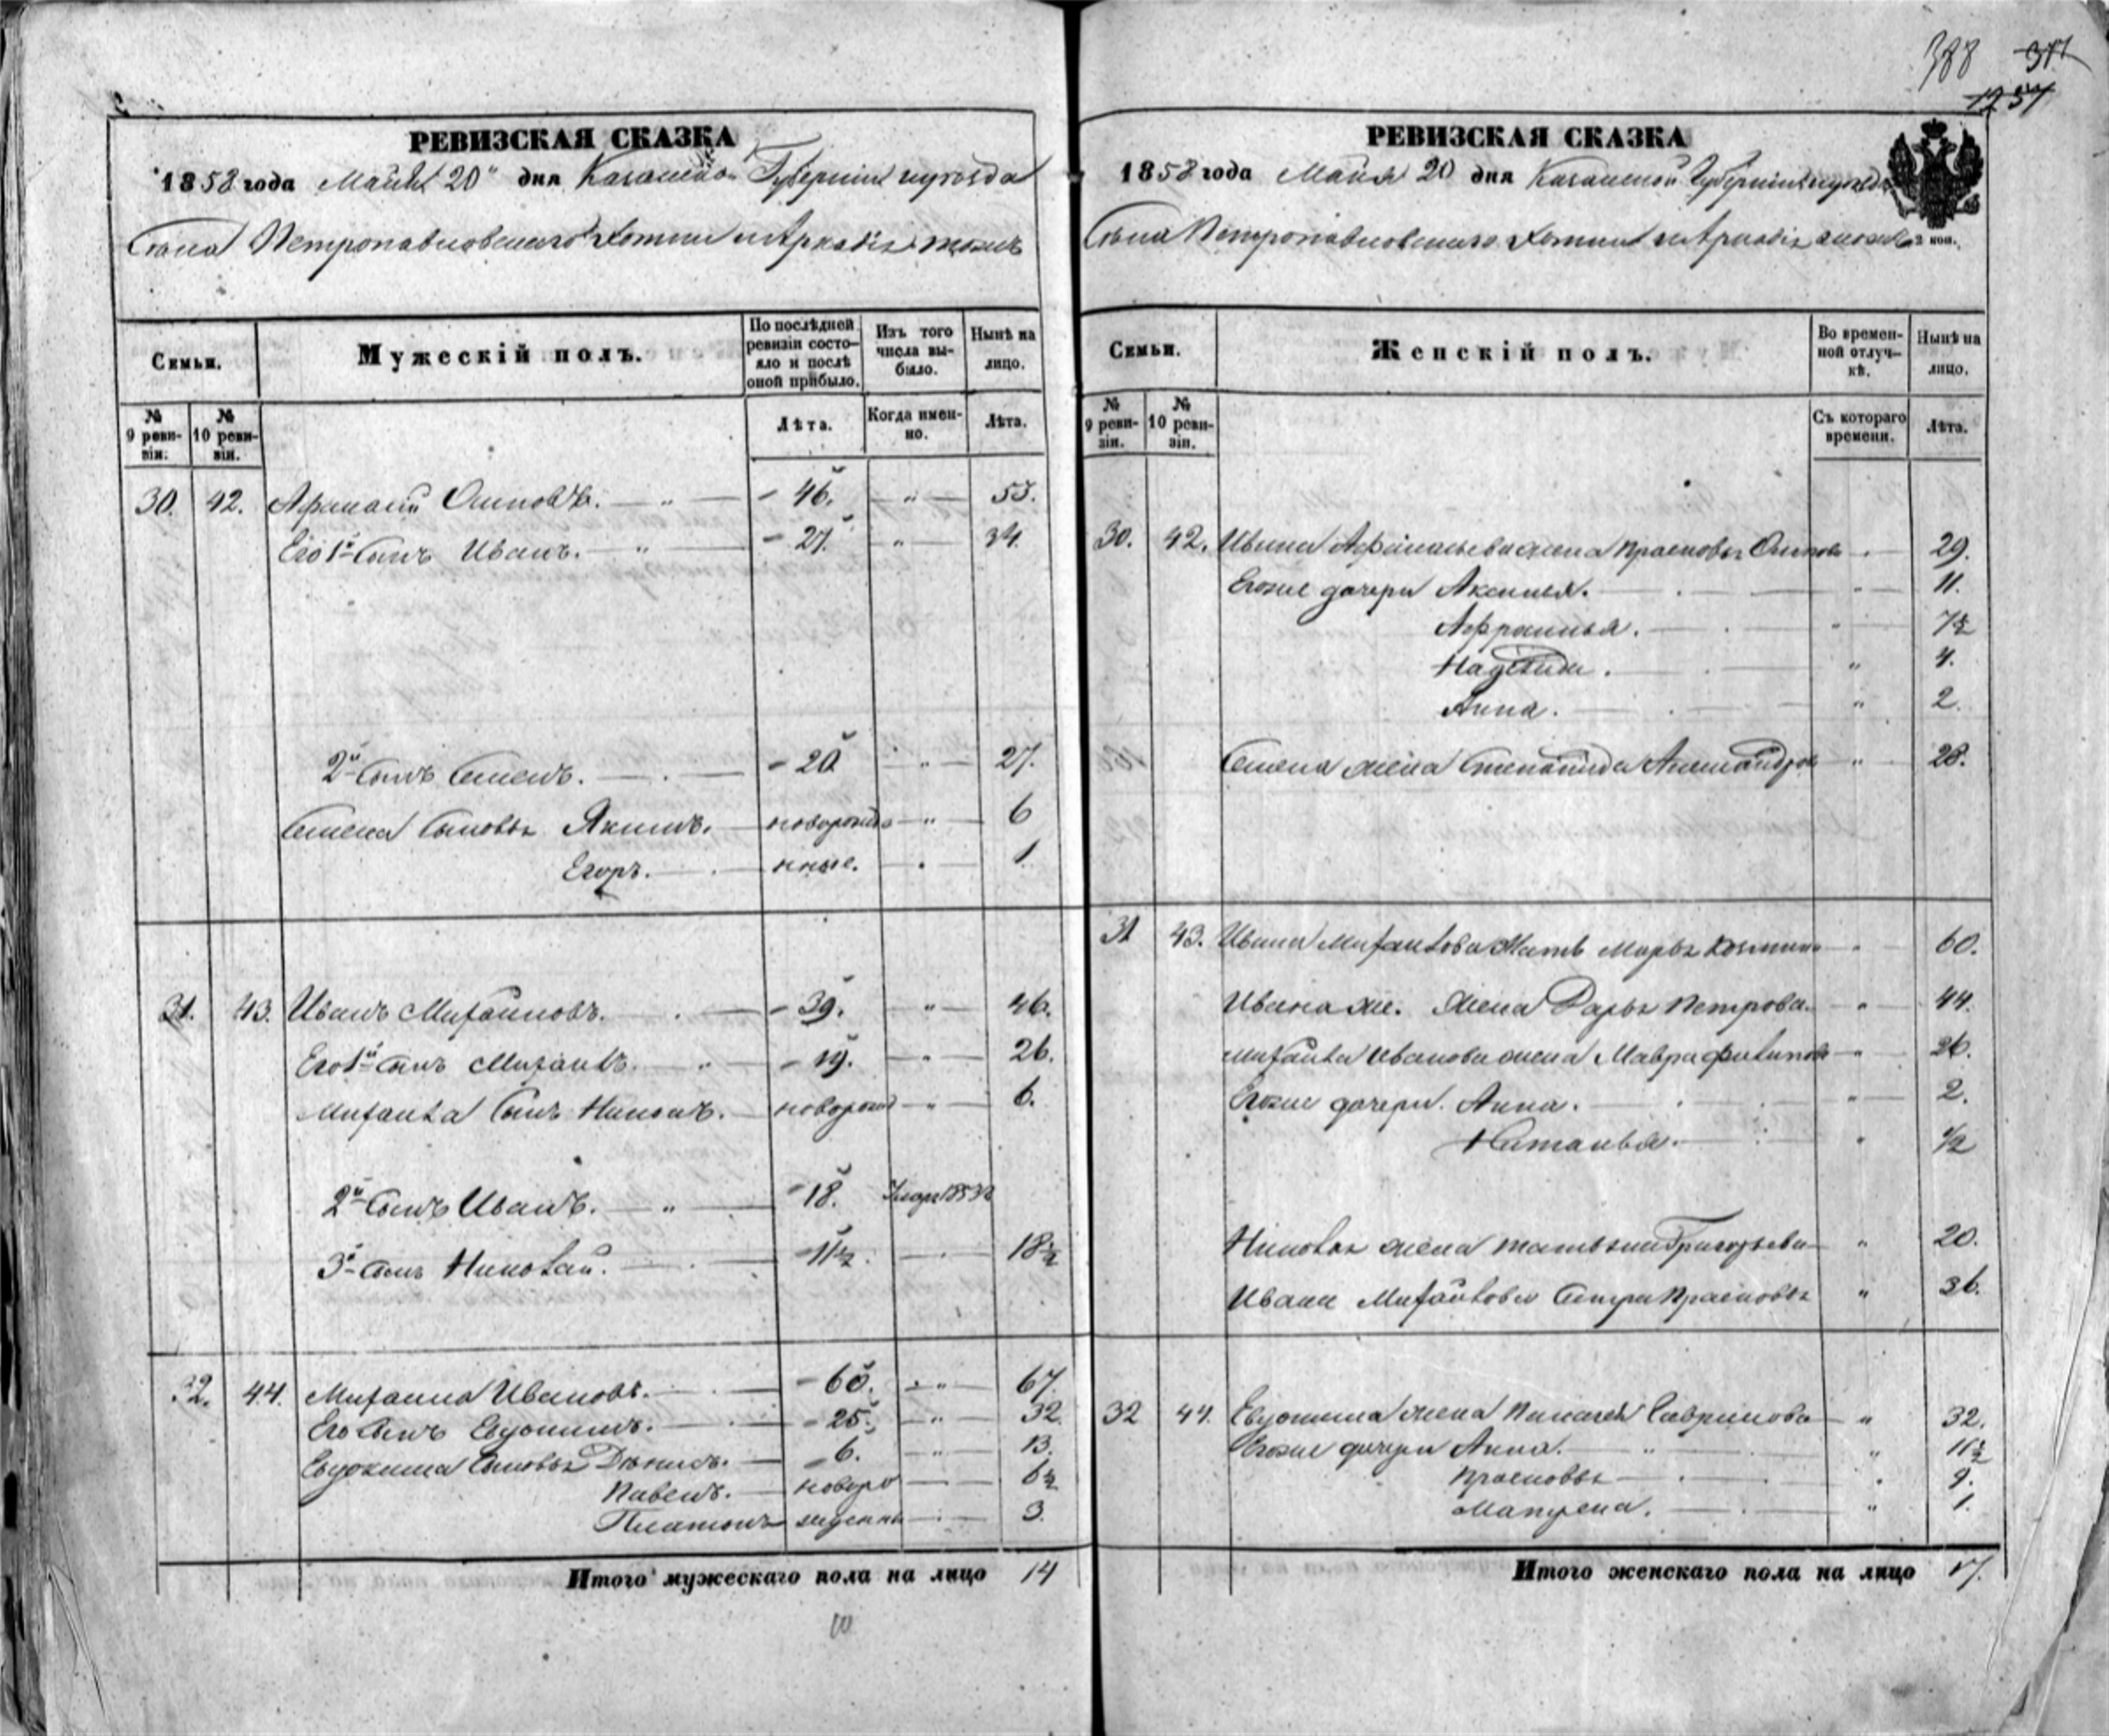 388 377
1257
РЕВИЗСКАЯ СКАЗКА
1858 года Майя 20 дня Казанской Губернии и уезда
Села Петропавловскаго тожъ
Семьи. Мужескій полъ. По послѣдней ревизіи состояло и послѣ оной прибыло. Изъ того числа выбыло. Нынѣ на лицо.
№ 9 ревизіи. № 10 ревизіи. Лѣта. Когда именно. Лѣта.
30. 42. Афанасій Осиповъ. 46. 53.
Его 1й Сынъ Иванъ. 27. 34.
2й Сынъ Семенъ. 20 27.
Семена Сыновья Якимъ. новорожде 6
Егоръ. нные. 1
31. 43. Иванъ Михайловъ. 39. 46.
Его 1й Сынъ Михаилъ. 19. 26.
Михаила Сынъ новорожд 6.
2й Сынъ Иванъ. 18. 1853
3й Сынъ Николай. 11½ 18½
32. 44. Михаила Ивановъ. 60. 67.
Его Сынъ Евдокимъ. 25. 32.
Евдокима Сыновья Денисъ. 6. 13.
Павелъ. новоро 6½
Платонъ жденны 3.
Итого мужескаго пола на лицо 14
10
РЕВИЗСКАЯ СКАЗКА
1858 года Майя 20 дня Казанской Губернии и уезда
Села Петропавловскаго тожъ
3 коп.
Семьи. Женскій полъ. Во временной отлучкѣ. Нынѣ на лицо.
№ 9 ревизіи. № 10 ревизіи. Съ котораго времени. Лѣта.
30. 42. Ивана Афанасьева жена Прасковья Осипова 29.
Егоже дочери Аксинья. 11.
Афросинья. 7½
Надежда. 4.
Анна. 2.
Семена жена Степанида Александрова 28.
31 43. Ивана Михайлова Мать Марья Козмина 60.
Ивана же. жена Дарья Петрова. 44.
Михаила Иванова жена Мавра Филипова 26.
Егоже дочери. Анна. 2.
Наталья. ½
Николая жена Татьяна Григорьева 20.
Ивана Михайлова Сестра Прасковья 36.
32 44. Евдокима жена Пелагея Гаврилова 32.
Егоже дочери Анна. 11½
Прасковья 9.
Матрена. 1.
Итого женскаго пола на лицо 17.